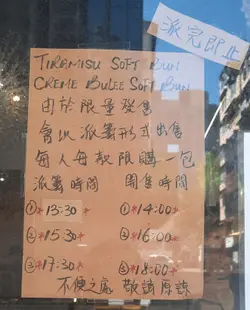 派完即止
TIRAMISU SOFT BUN
CREME BULEE SOFT BUN
由於限量發售
會以派籌形式出售
每人每款限購一包
派籌時間 開售時間
①*13:30* ①*14:00*
②*15:30* ②*16:00*
③*17:30* ③*18:00*
不便之處 敬請原諒